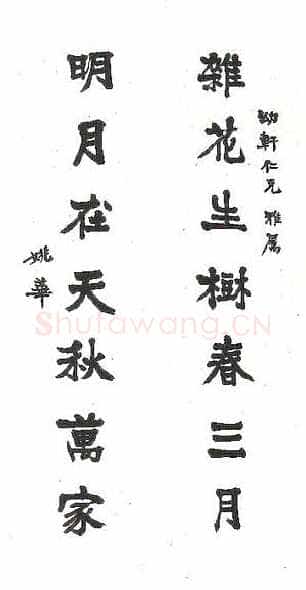 軒仁兄 雅屬
雜花生樹春三月
明月在天秋萬家
姚華
Shufawang.CN